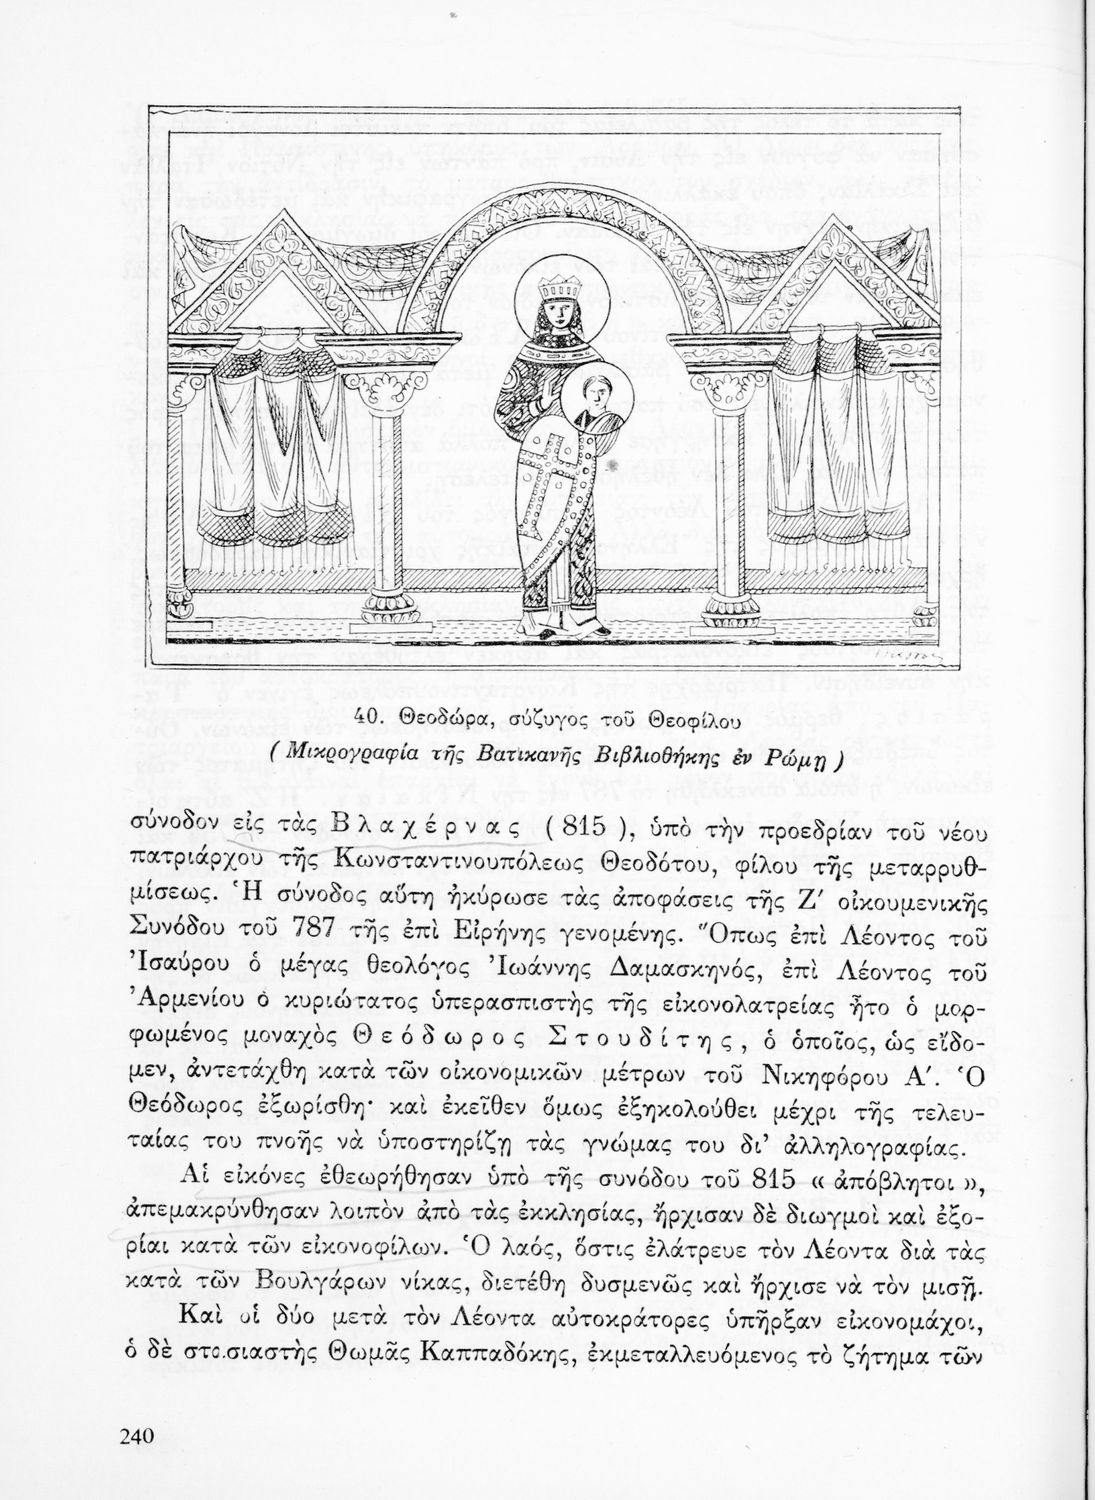 40. Θεοδώρα, σύζυγος τοῦ Θεοφίλου
( Μικρογραφία τῆς Βατικανῆς Βιβλιοθήκης ἐν Ρώμῃ )
σύνοδον εἰς τὰς Βλαχέρνας ( 815 ), ὑπὸ τὴν προεδρίαν τοῦ νέου
πατριάρχου τῆς Κωνσταντινουπόλεως Θεοδότου, φίλου τῆς μεταρρυθ-
μίσεως. Ἡ σύνοδος αὕτη ἠκύρωσε τὰς ἀποφάσεις τῆς Ζ′ οἰκουμενικῆς
Συνόδου τοῦ 787 τῆς ἐπὶ Εἰρήνης γενομένης. Ὅπως ἐπὶ Λέοντος τοῦ
Ἰσαύρου ὁ μέγας θεολόγος Ἰωάννης Δαμασκηνός, ἐπὶ Λέοντος τοῦ
Ἀρμενίου ὁ κυριώτατος ὑπερασπιστὴς τῆς εἰκονολατρείας ἦτο ὁ μορ-
φωμένος μοναχὸς Θεόδωρος Στουδίτης, ὁ ὁποῖος, ὡς εἴδο-
μεν, ἀντετάχθη κατὰ τῶν οἰκονομικῶν μέτρων τοῦ Νικηφόρου Α′. Ὁ
Θεόδωρος ἐξωρίσθη· καὶ ἐκεῖθεν ὅμως ἐξηκολούθει μέχρι τῆς τελευ-
ταίας του πνοῆς νὰ ὑποστηρίζῃ τὰς γνώμας του δι’ ἀλληλογραφίας.
Αἱ εἰκόνες ἐθεωρήθησαν ὑπὸ τῆς συνόδου τοῦ 815 « ἀπόβλητοι »,
ἀπεμακρύνθησαν λοιπὸν ἀπὸ τὰς ἐκκλησίας, ἤρχισαν δὲ διωγμοὶ καὶ ἐξο-
ρίαι κατὰ τῶν εἰκονοφίλων. Ὁ λαός, ὅστις ἐλάτρευε τὸν Λέοντα διὰ τὰς
κατὰ τῶν Βουλγάρων νίκας, διετέθη δυσμενῶς καὶ ἤρχισε νὰ τὸν μισῇ.
Καὶ οἱ δύο μετὰ τὸν Λέοντα αὐτοκράτορες ὑπῆρξαν εἰκονομάχοι,
ὁ δὲ στασιαστὴς Θωμᾶς Καππαδόκης, ἐκμεταλλευόμενος τὸ ζήτημα τῶν
240